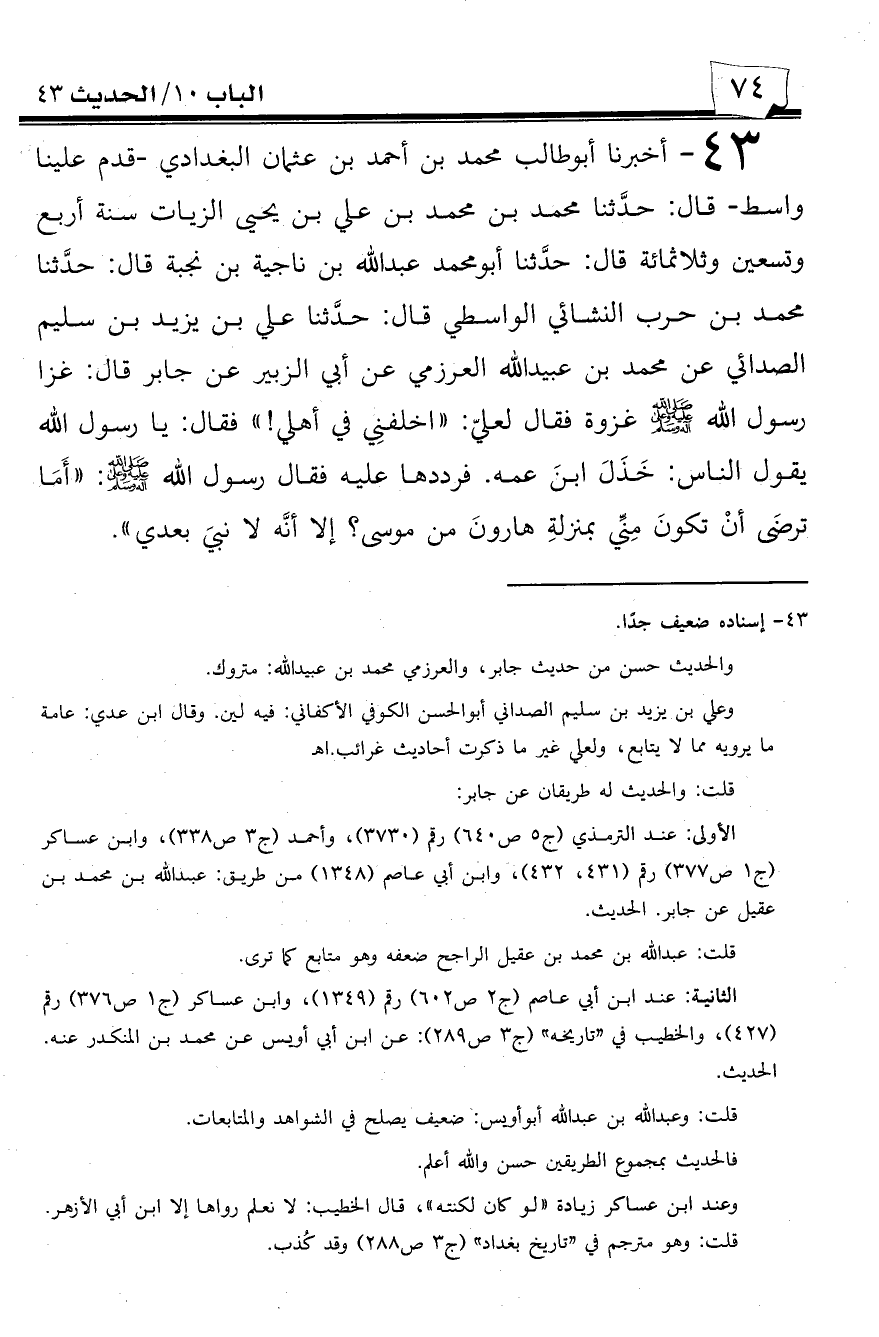 ٧٤
الباب ١٠/الحديث ٤٣
٤٣- أخبرنا أبوطالب محمد بن أحمد بن عثمان البغدادي -قدم علينا
واسط- قال: حدَّثنا محمد بن محمد بن علي بن يحيى الزيات سنة أربع
وتسعين وثلاثمائة قال: حدَّثنا أبومحمد عبدالله بن ناجية بن نجبة قال: حدَّثنا
محمد بن حرب النشائي الواسطي قال: حدَّثنا علي بن يزيد بن سليم
الصدائي عن محمد بن عبيدالله العرزمي عن أبي الزبير عن جابر قال: غزا
رسول الله ﷺ غزوة فقال لعليّ: «اخلفنِي في أهلي!» فقال: يا رسول الله
يقول الناس: خَذَلَ ابنَ عمه. فرددها عليه فقال رسول الله ﷺ: «أَمَا
ترضَى أنْ تكونَ مِنِّي بمنزلةِ هارونَ من موسى؟ إلا أنَّه لا نبيَ بعدي».
٤٣- إسناده ضعيف جدًا.
والحديث حسن من حديث جابر، والعرزمي محمد بن عبيدالله: متروك.
وعلي بن يزيد بن سليم الصداني أبوالحسن الكوفي الأكفاني: فيه لين. وقال ابن عدي: عامة
ما يرويه مما لا يتابع، ولعلي غير ما ذكرت أحاديث غرائب.اهـ
قلت: والحديث له طريقان عن جابر:
الأولى: عند الترمذي (ج٥ ص٦٤٠) رقم (٣٧٣٠)، وأحمد (ج٣ ص٣٣٨)، وابن عساكر
(ج١ ص٣٧٧) رقم (٤٣١، ٤٣٢)، وابن أبي عاصم (١٣٤٨) من طريق: عبدالله بن محمد بن
عقيل عن جابر. الحديث.
قلت: عبدالله بن محمد بن عقيل الراجح ضعفه وهو متابع كما ترى.
الثانية: عند ابن أبي عاصم (ج٢ ص٦٠٢) رقم (١٣٤٩)، وابن عساكر (ج١ ص٣٧٦) رقم
(٤٢٧)، والخطيب في "تاريخه" (ج٣ ص٢٨٩): عن ابن أبي أويس عن محمد بن المنكدر عنه.
الحديث.
قلت: وعبدالله بن عبدالله أبوأويس: ضعيف يصلح في الشواهد والمتابعات.
فالحديث بمجموع الطريقين حسن والله أعلم.
وعند ابن عساكر زيادة «لو كان لكنته»، قال الخطيب: لا نعلم رواها إلا ابن أبي الأزهر.
قلت: وهو مترجم في "تاريخ بغداد" (ج٣ ص٢٨٨) وقد كُذب.